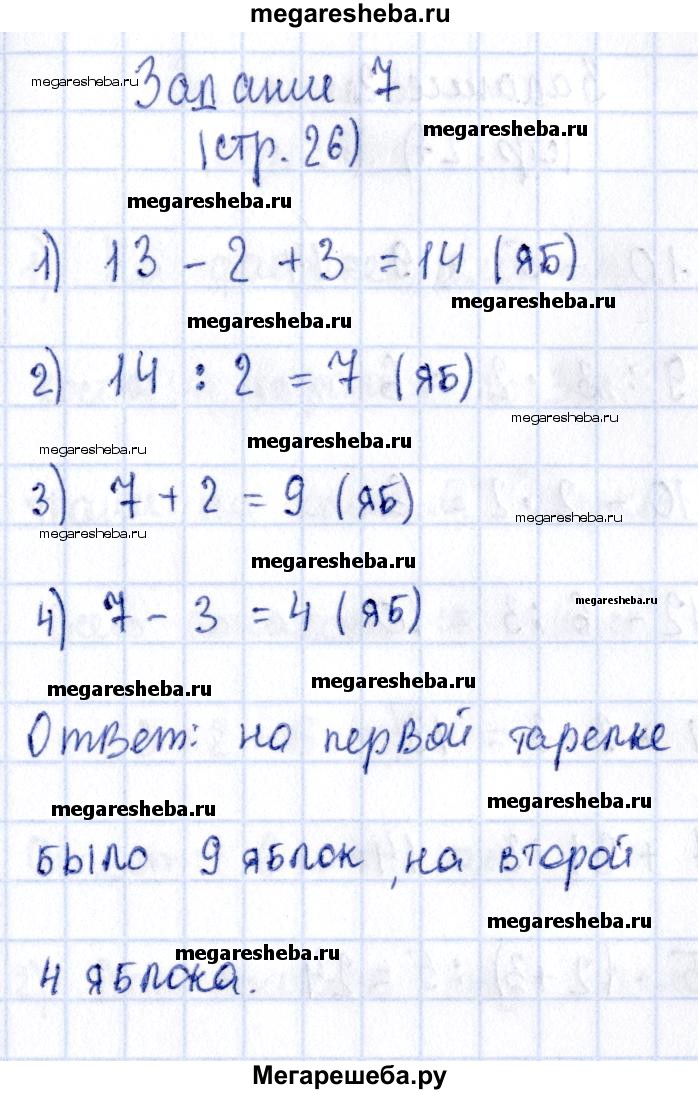 megaresheba.ru
megaresheba.ru
Задание 7
megaresheba.ru
(стр. 26)
megaresheba.ru
1) 13 - 2 + 3 = 14 (яб)
megaresheba.ru
megaresheba.ru
2) 14 : 2 = 7 (яб)
megaresheba.ru
megaresheba.ru
megaresheba.ru
3) 7 + 2 = 9 (яб)
megaresheba.ru
megaresheba.ru
megaresheba.ru
megaresheba.ru
4) 7 - 3 = 4 (яб)
megaresheba.ru
megaresheba.ru
Ответ: на первой тарелке
megaresheba.ru
megaresheba.ru
было 9 яблок, на второй
megaresheba.ru
megaresheba.ru
4 яблока.
Мегарешеба.ру